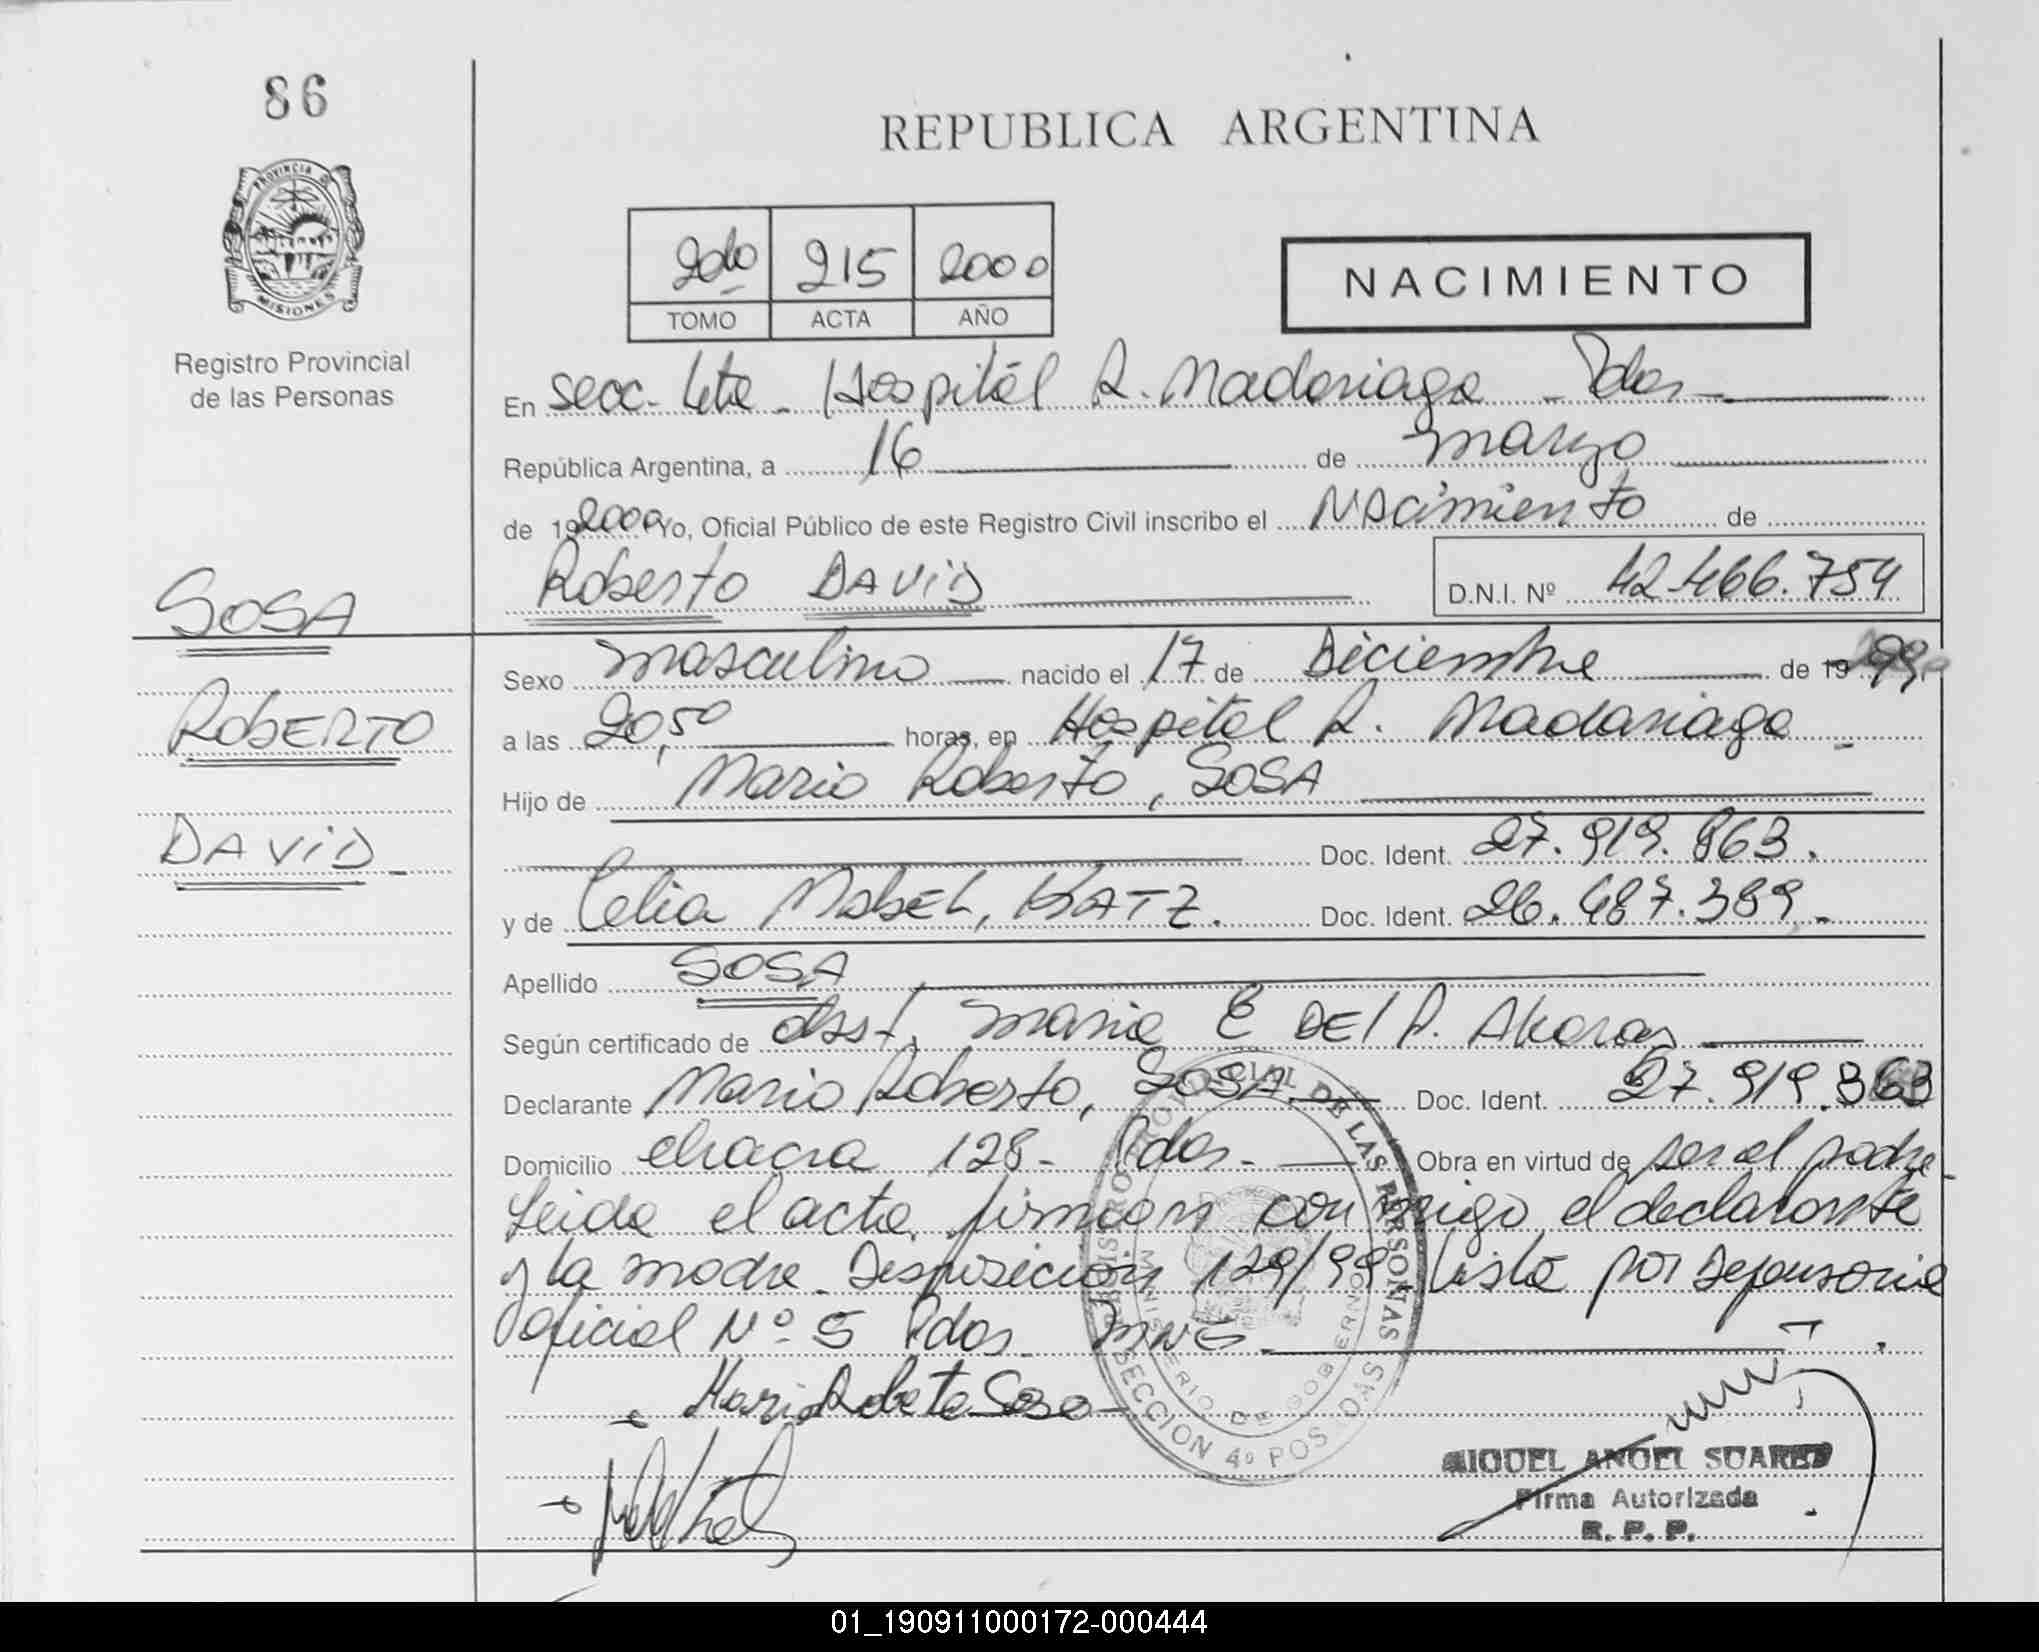 86
REPUBLICA ARGENTINA
PROVINCIA DE
MISIONES
Registro Provincial
de las Personas
2do 215 2000
TOMO ACTA AÑO
NACIMIENTO
En secc. 4ta - Hospital R. Madariaga - Pdas
República Argentina, a 16 de marzo
de 192000 Yo, Oficial Público de este Registro Civil inscribo el Nacimiento de
Roberto DAViD D.N.I. Nº 42.466.754
SOSA
ROBERTO
DAViD
Sexo masculino nacido el 17 de Diciembre de 19 99
a las 20,50 horas, en Hospital R. Madariaga
Hijo de Mario Roberto, SOSA
Doc. Ident. 27.919.863.
y de Celia MabEL, KATZ. Doc. Ident. 26.487.389.
Apellido SOSA
Según certificado de Obst, Maria E DEl R.
Declarante Mario Roberto, SOSA Doc. Ident. 27.919.863
Domicilio chacra 128- Pdas- Obra en virtud de ser el padre
Leida el acta firman conmigo el declarante
y la madre. Disposición 129/99 Vista por Defensoria
Oficial Nº 5 Pdas. Mnes
Mario Roberto Sosa
REGISTRO PROVINCIAL DE LAS PERSONAS
MINISTERIO DE GOBIERNO
SECCION 4º POSADAS
MIGUEL ANGEL SUAREZ
Firma Autorizada
R. P. P.
01_190911000172-000444